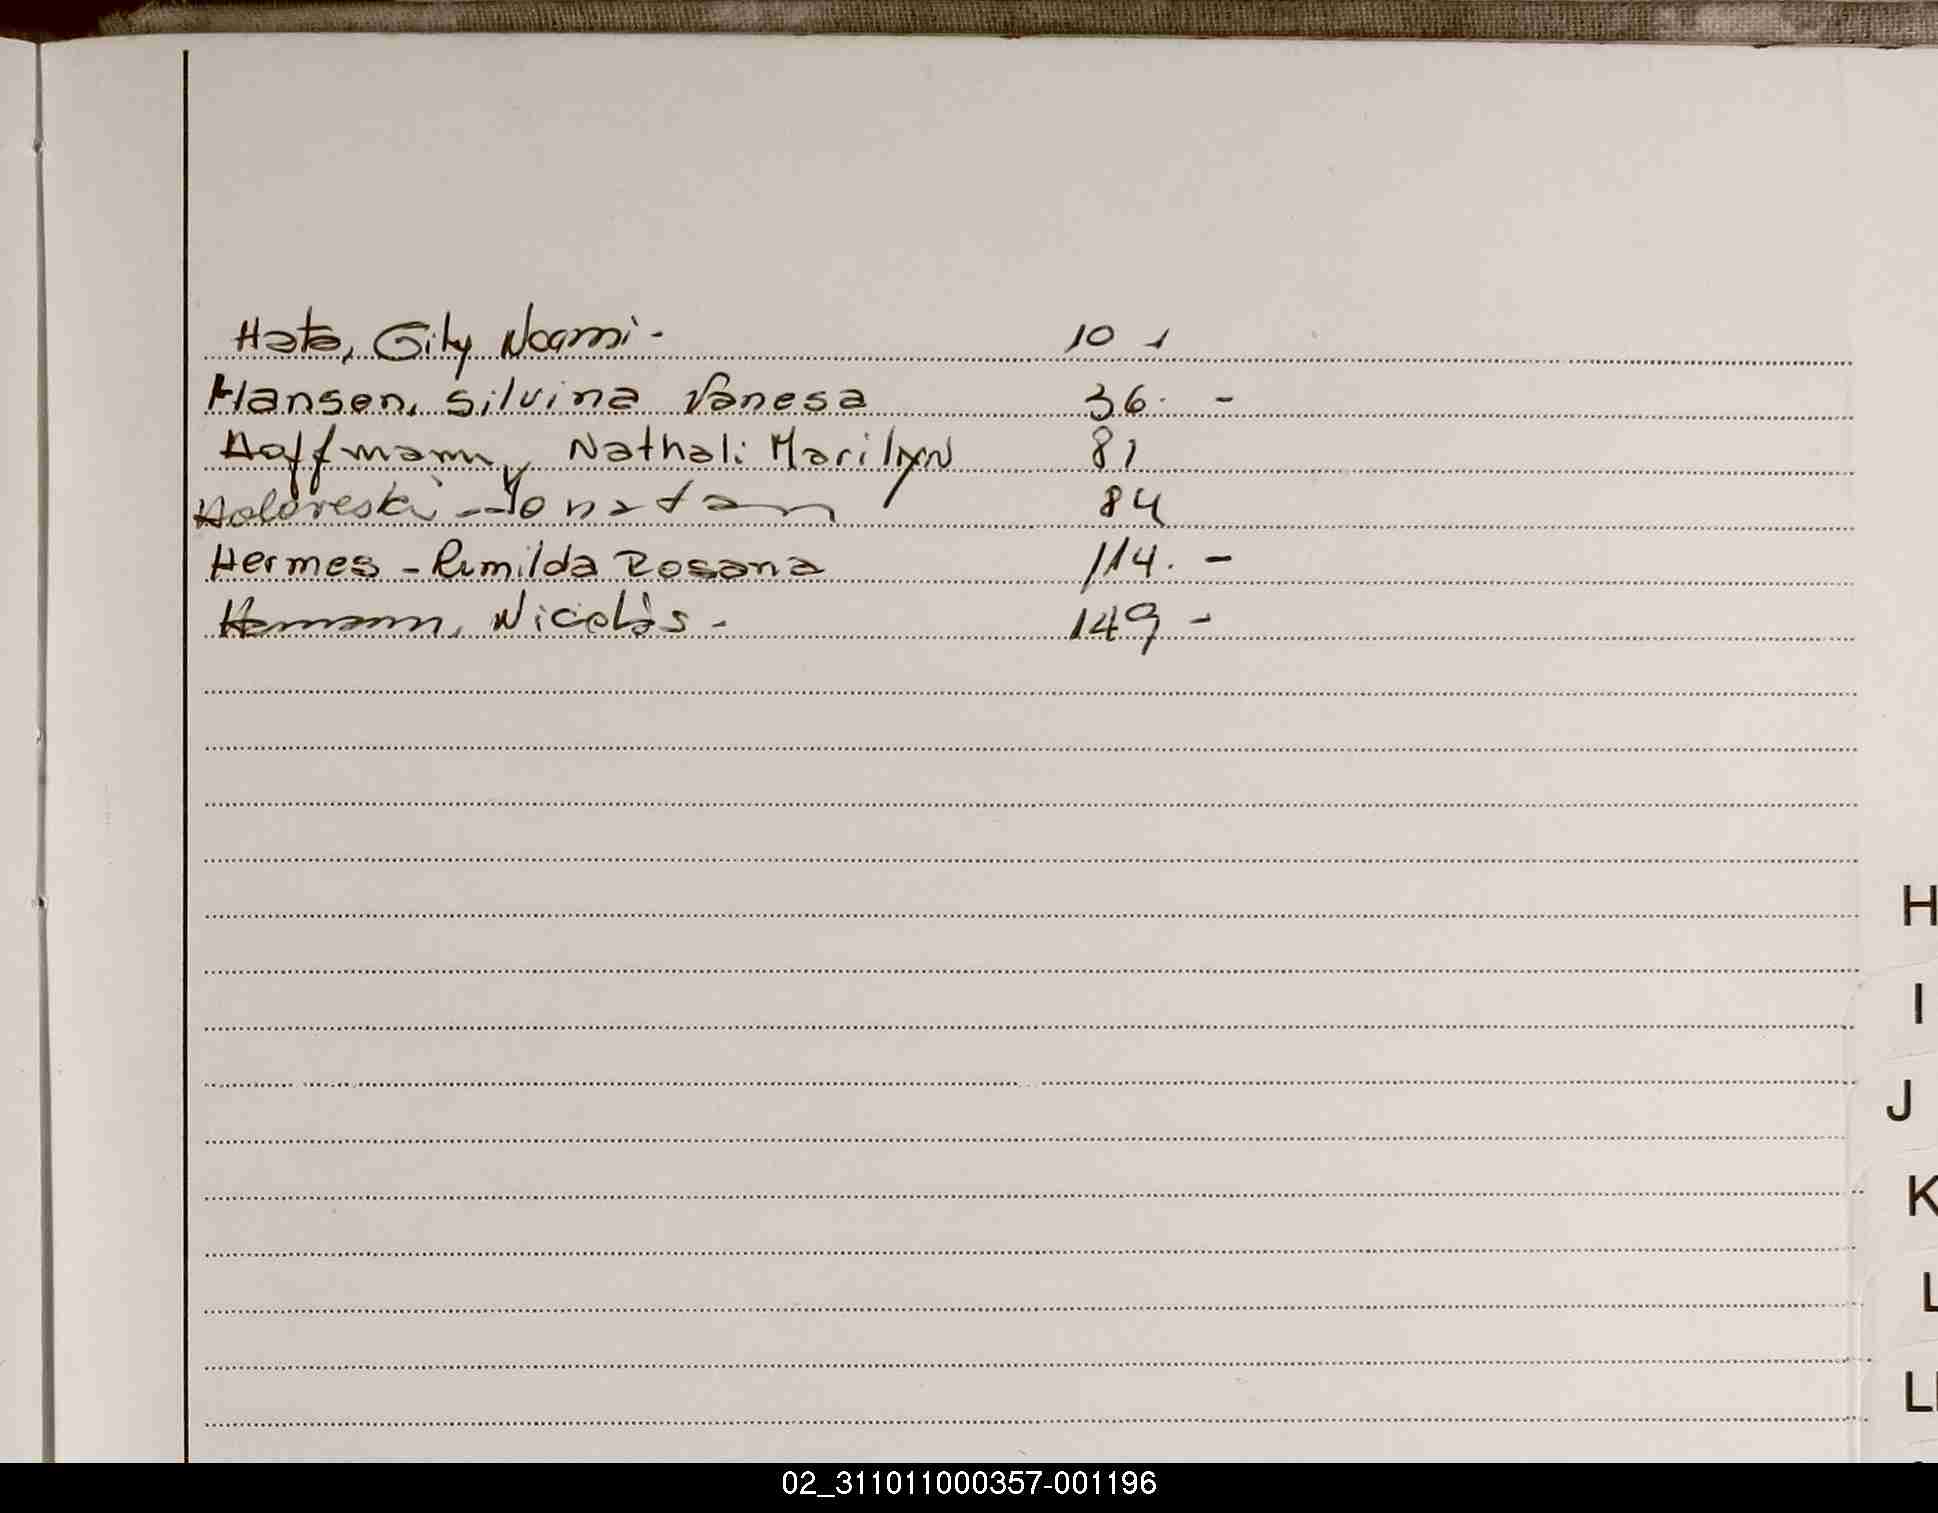 Hata, Gity Noemi - 10 -
Hansen, Silvina Vanesa 36. -
Hoffmann, Nathali Marilyn 81
Yonatan 84
Hermes - Rumilda Rosana 114. -
Hamann, Nicolàs - 149 -
H
I
J
K
L
LL
02_311011000357-001196